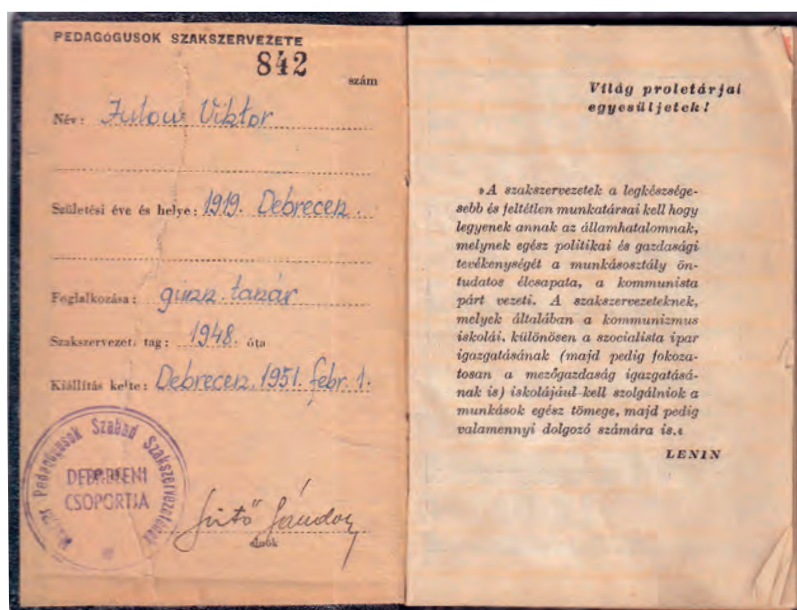 PEDAGÓGUSOK SZAKSZERVEZETE
842
szám
Név: Julow Viktor
Születési éve és helye: 1919. Debrecen.
Foglalkozása: gimn. tanár
Szakszervezeti tag: 1948. óta
Kiállítás kelte: Debrecen, 1951. febr. 1.
Magyar Pedagógusok Szabad Szakszervezete
DEBRECENI
CSOPORTJA
Sándor
elnök
Világ proletárjai
egyesüljetek!
»A szakszervezetek a legkészsége-
sebb és feltétlen munkatársai kell hogy
legyenek annak az államhatalomnak,
melynek egész politikai és gazdasági
tevékenységét a munkásosztály ön-
tudatos élcsapata, a kommunista
párt vezeti. A szakszervezeteknek,
melyek általában a kommunizmus
iskolái, különösen a szocialista ipar
igazgatásának (majd pedig fokoza-
tosan a mezőgazdaság igazgatásá-
nak is) iskolájául kell szolgálniok a
munkások egész tömege, majd pedig
valamennyi dolgozó számára is.«
LENIN